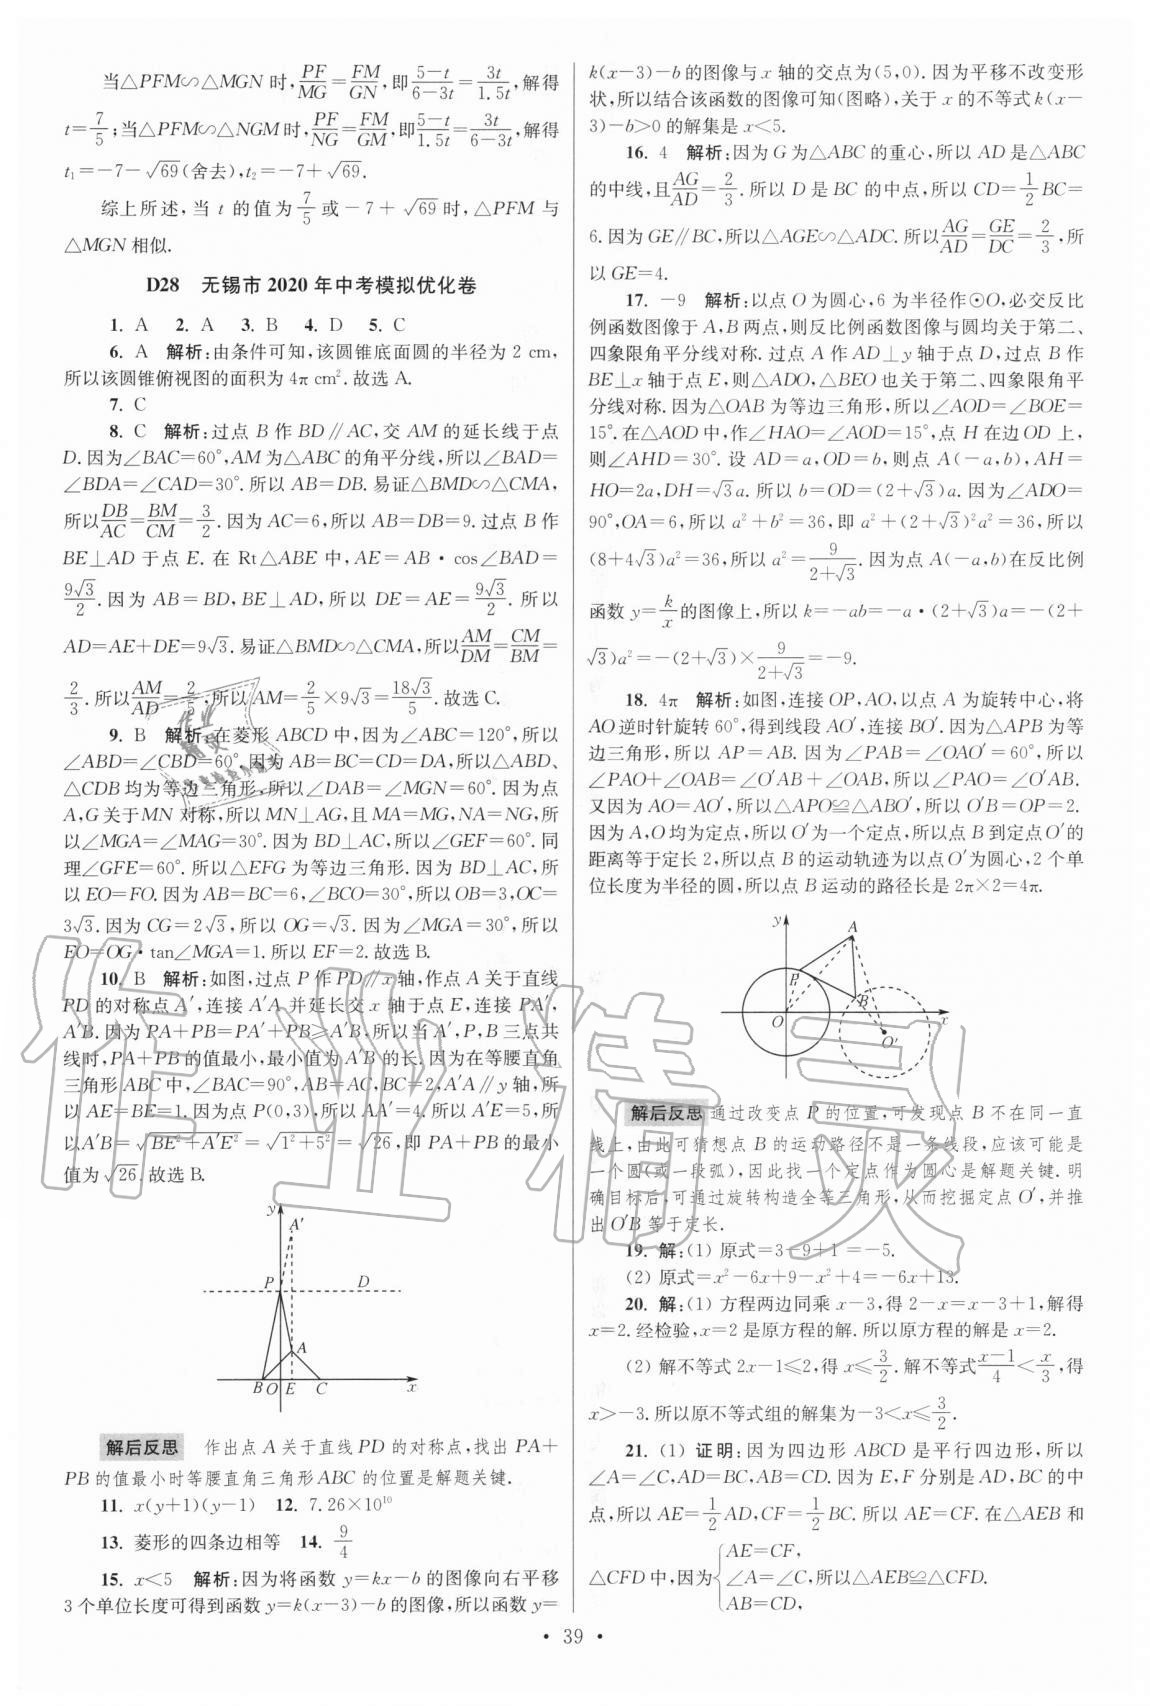 当△PFM∽△MGN 时, PF/MG=FM/GN, 即 (5-t)/(6-3t)=3t/1.5t, 解得
t=7/5; 当△PFM∽△NGM 时, PF/NG=FM/GM, 即 (5-t)/1.5t=3t/(6-3t), 解得
t₁=-7-√69(舍去), t₂=-7+√69.
综上所述, 当 t 的值为 7/5 或 -7+√69 时, △PFM 与
△MGN 相似.
D28 无锡市 2020 年中考模拟优化卷
1. A 2. A 3. B 4. D 5. C
6. A 解析:由条件可知,该圆锥底面圆的半径为 2 cm,
所以该圆锥俯视图的面积为 4π cm². 故选 A.
7. C
8. C 解析:过点 B 作 BD∥AC, 交 AM 的延长线于点
D. 因为∠BAC=60°, AM 为△ABC 的角平分线, 所以∠BAD=
∠BDA=∠CAD=30°. 所以 AB=DB. 易证△BMD∽△CMA,
所以 DB/AC=BM/CM=3/2. 因为 AC=6, 所以 AB=DB=9. 过点 B 作
BE⊥AD 于点 E. 在 Rt△ABE 中, AE=AB·cos∠BAD=
9√3/2. 因为 AB=BD, BE⊥AD, 所以 DE=AE=9√3/2. 所以
AD=AE+DE=9√3. 易证△BMD∽△CMA, 所以 AM/DM=CM/BM=
2/3. 所以 AM/AD=2/5, 所以 AM=2/5×9√3=18√3/5. 故选 C.
9. B 解析:在菱形 ABCD 中, 因为∠ABC=120°, 所以
∠ABD=∠CBD=60°. 因为 AB=BC=CD=DA, 所以△ABD、
△CDB 均为等边三角形, 所以∠DAB=∠MGN=60°. 因为点
A, G 关于 MN 对称, 所以 MN⊥AG, 且 MA=MG, NA=NG, 所
以∠MGA=∠MAG=30°. 因为 BD⊥AC, 所以∠GEF=60°. 同
理∠GFE=60°. 所以△EFG 为等边三角形. 因为 BD⊥AC, 所
以 EO=FO. 因为 AB=BC=6, ∠BCO=30°, 所以 OB=3, OC=
3√3. 因为 CG=2√3, 所以 OG=√3. 因为∠MGA=30°, 所以
EO=OG·tan∠MGA=1. 所以 EF=2. 故选 B.
10. B 解析:如图, 过点 P 作 PD∥x 轴, 作点 A 关于直线
PD 的对称点 A′, 连接 A′A 并延长交 x 轴于点 E, 连接 PA′,
A′B. 因为 PA+PB=PA′+PB≥A′B, 所以当 A′, P, B 三点共
线时, PA+PB 的值最小, 最小值为 A′B 的长. 因为在等腰直角
三角形 ABC 中, ∠BAC=90°, AB=AC, BC=2, A′A∥y 轴, 所
以 AE=BE=1. 因为点 P(0,3), 所以 AA′=4. 所以 A′E=5, 所
以 A′B=√(BE²+A′E²)=√(1²+5²)=√26, 即 PA+PB 的最小
值为√26. 故选 B.
y A′
P D
A
B O E C x
解后反思 作出点 A 关于直线 PD 的对称点, 找出 PA+
PB 的值最小时等腰直角三角形 ABC 的位置是解题关键.
11. x(y+1)(y-1) 12. 7.26×10¹⁰
13. 菱形的四条边相等 14. 9/4
15. x<5 解析:因为将函数 y=kx-b 的图像向右平移
3 个单位长度可得到函数 y=k(x-3)-b 的图像, 所以函数 y=
k(x-3)-b 的图像与 x 轴的交点为(5,0). 因为平移不改变形
状, 所以结合该函数的图像可知(图略), 关于 x 的不等式 k(x-
3)-b>0 的解集是 x<5.
16. 4 解析:因为 G 为△ABC 的重心, 所以 AD 是△ABC
的中线, 且 AG/AD=2/3. 所以 D 是 BC 的中点, 所以 CD=1/2 BC=
6. 因为 GE∥BC, 所以△AGE∽△ADC. 所以 AG/AD=GE/DC=2/3, 所
以 GE=4.
17. -9 解析:以点 O 为圆心, 6 为半径作⊙O, 必交反比
例函数图像于 A, B 两点, 则反比例函数图像与圆均关于第二、
四象限角平分线对称. 过点 A 作 AD⊥y 轴于点 D, 过点 B 作
BE⊥x 轴于点 E, 则△ADO, △BEO 也关于第二、四象限角平
分线对称. 因为△OAB 为等边三角形, 所以∠AOD=∠BOE=
15°. 在△AOD 中, 作∠HAO=∠AOD=15°, 点 H 在边 OD 上,
则∠AHD=30°. 设 AD=a, OD=b, 则点 A(-a,b), AH=
HO=2a, DH=√3a. 所以 b=OD=(2+√3)a. 因为∠ADO=
90°, OA=6, 所以 a²+b²=36, 即 a²+(2+√3)²a²=36, 所以
(8+4√3)a²=36, 所以 a²=9/(2+√3). 因为点 A(-a,b)在反比例
函数 y=k/x 的图像上, 所以 k=-ab=-a·(2+√3)a=-(2+
√3)a²=-(2+√3)×9/(2+√3)=-9.
18. 4π 解析:如图, 连接 OP, AO, 以点 A 为旋转中心, 将
AO 逆时针旋转 60°, 得到线段 AO′, 连接 BO′. 因为△APB 为等
边三角形, 所以 AP=AB. 因为∠PAB=∠OAO′=60°, 所以
∠PAO+∠OAB=∠O′AB+∠OAB, 所以∠PAO=∠O′AB.
又因为 AO=AO′, 所以△APO≌△ABO′, 所以 O′B=OP=2.
因为 A, O 均为定点, 所以 O′为一个定点, 所以点 B 到定点 O′的
距离等于定长 2, 所以点 B 的运动轨迹为以点 O′为圆心, 2 个单
位长度为半径的圆, 所以点 B 运动的路径长是 2π×2=4π.
y A
P
B
O x
O′
解后反思 通过改变点 P 的位置, 可发现点 B 不在同一直
线上, 由此可猜想点 B 的运动路径不是一条线段, 应该可能是
一个圆(或一段弧), 因此找一个定点作为圆心是解题关键. 明
确目标后, 可通过旋转构造全等三角形, 从而挖掘定点 O′, 并推
出 O′B 等于定长.
19. 解:(1) 原式=3-9+1=-5.
(2) 原式=x²-6x+9-x²+4=-6x+13.
20. 解:(1) 方程两边同乘 x-3, 得 2-x=x-3+1, 解得
x=2. 经检验, x=2 是原方程的解. 所以原方程的解是 x=2.
(2) 解不等式 2x-1≤2, 得 x≤3/2. 解不等式 (x-1)/4<x/3, 得
x>-3. 所以原不等式组的解集为-3<x≤3/2.
21. (1) 证明:因为四边形 ABCD 是平行四边形, 所以
∠A=∠C, AD=BC, AB=CD. 因为 E, F 分别是 AD, BC 的中
点, 所以 AE=1/2 AD, CF=1/2 BC. 所以 AE=CF. 在△AEB 和
△CFD 中, 因为 { AE=CF, ∠A=∠C, AB=CD, 所以△AEB≌△CFD.
· 39 ·
作业精灵